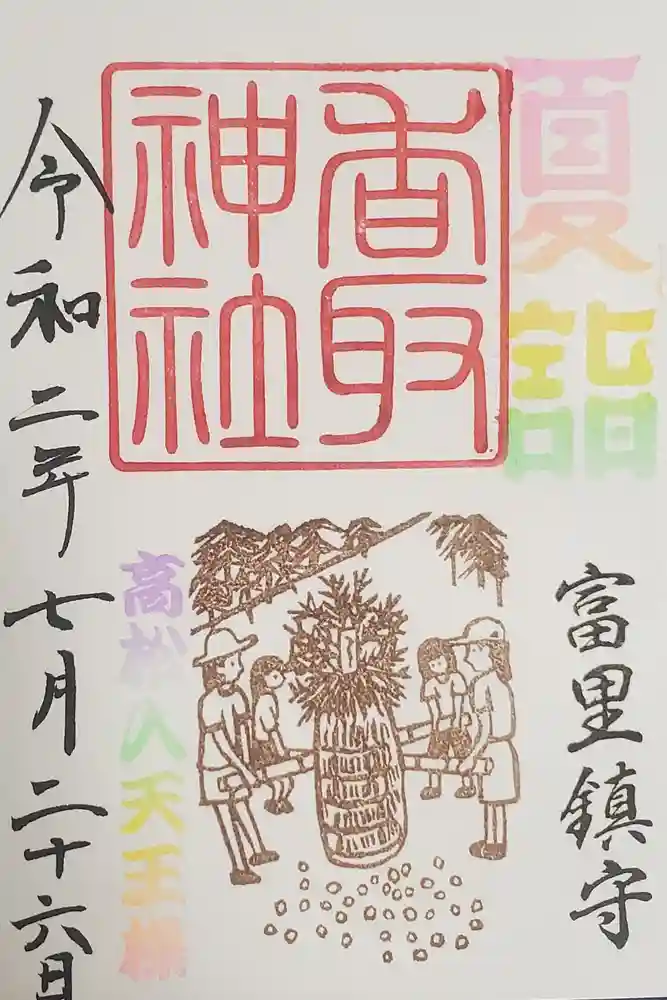 夏詣
富里鎮守
香取
神社
高松入天王様
令和二年七月二十六日